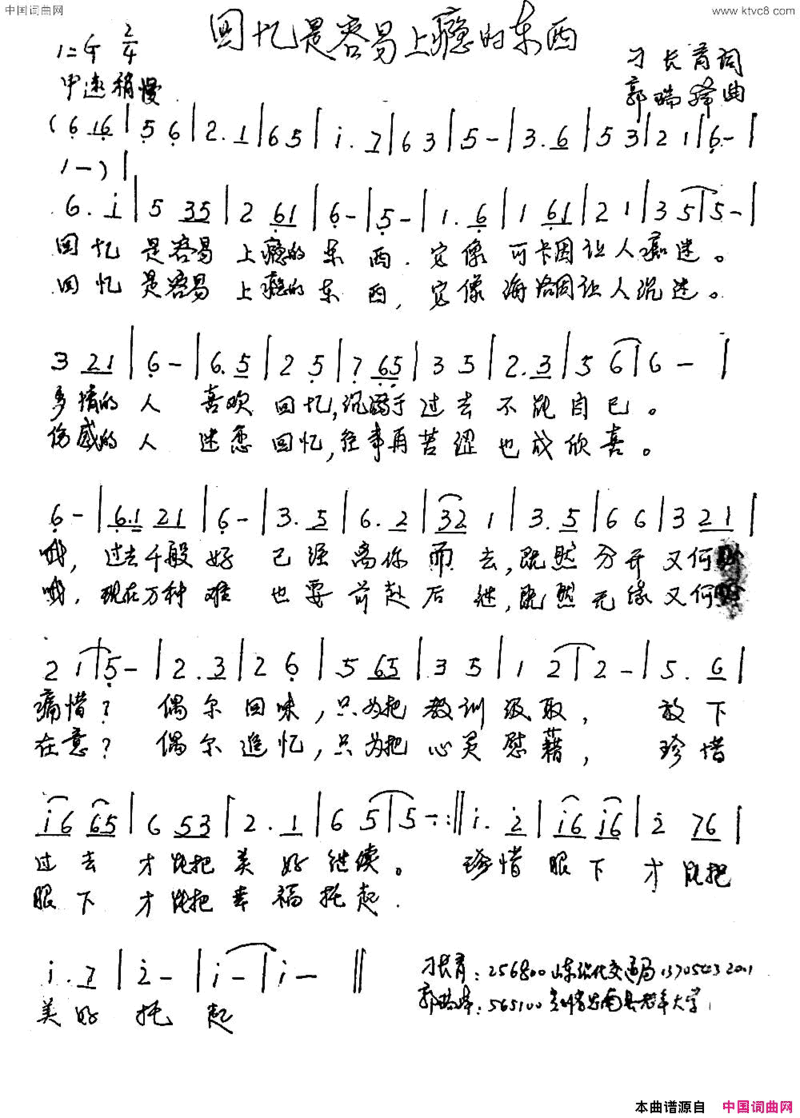 中国词曲网
www.ktvc8.com
回忆是容易上瘾的东西
1=G 2/4
刁长育词
中速稍慢
郭瑞绛曲
(6 16|5 6|2.1|6 5|i.7|6 3|5-|3.6|5 3|2 1|6-|
1-)|
6.i|5 35|2 61|6-|5-|1.6|1 61|2 1|3 5|5-|
回忆是容易上瘾的东西.它像可卡因让人痴迷。
回忆是容易上瘾的东西,它像海洛因让人沉迷。
3 21|6-|6.5|2 5|7 65|3 5|2.3|5 6|6-|
多情的人喜欢回忆,沉溺于过去不能自已。
伤感的人迷恋回忆,往事再苦涩也成欣喜。
6-|6.1 21|6-|3.5|6.2|32 1|3.5|6 6|3 21|
哦,过去千般好已经离你而去,既然分开又何
哦,现在万种难也要前赴后继,既然无缘又何
2 1|5-|2.3|2 6|5 65|3 5|1 2|2-|5.6|
痛惜?偶尔回味,只为把教训汲取,放下
在意?偶尔追忆,只为把心灵慰藉,珍惜
i6 65|6 53|2.1|6 5|5-:||i.2|i6 i6|2 76|
过去才能把美好继续。珍惜眼下才能把
眼下才能把幸福托起.
i.7|2-|i-|i-||
美好托起
刁长育:256800山东沾化交通局
郭瑞绛:565100贵州省思南县老年大学
本曲谱源自 中国词曲网